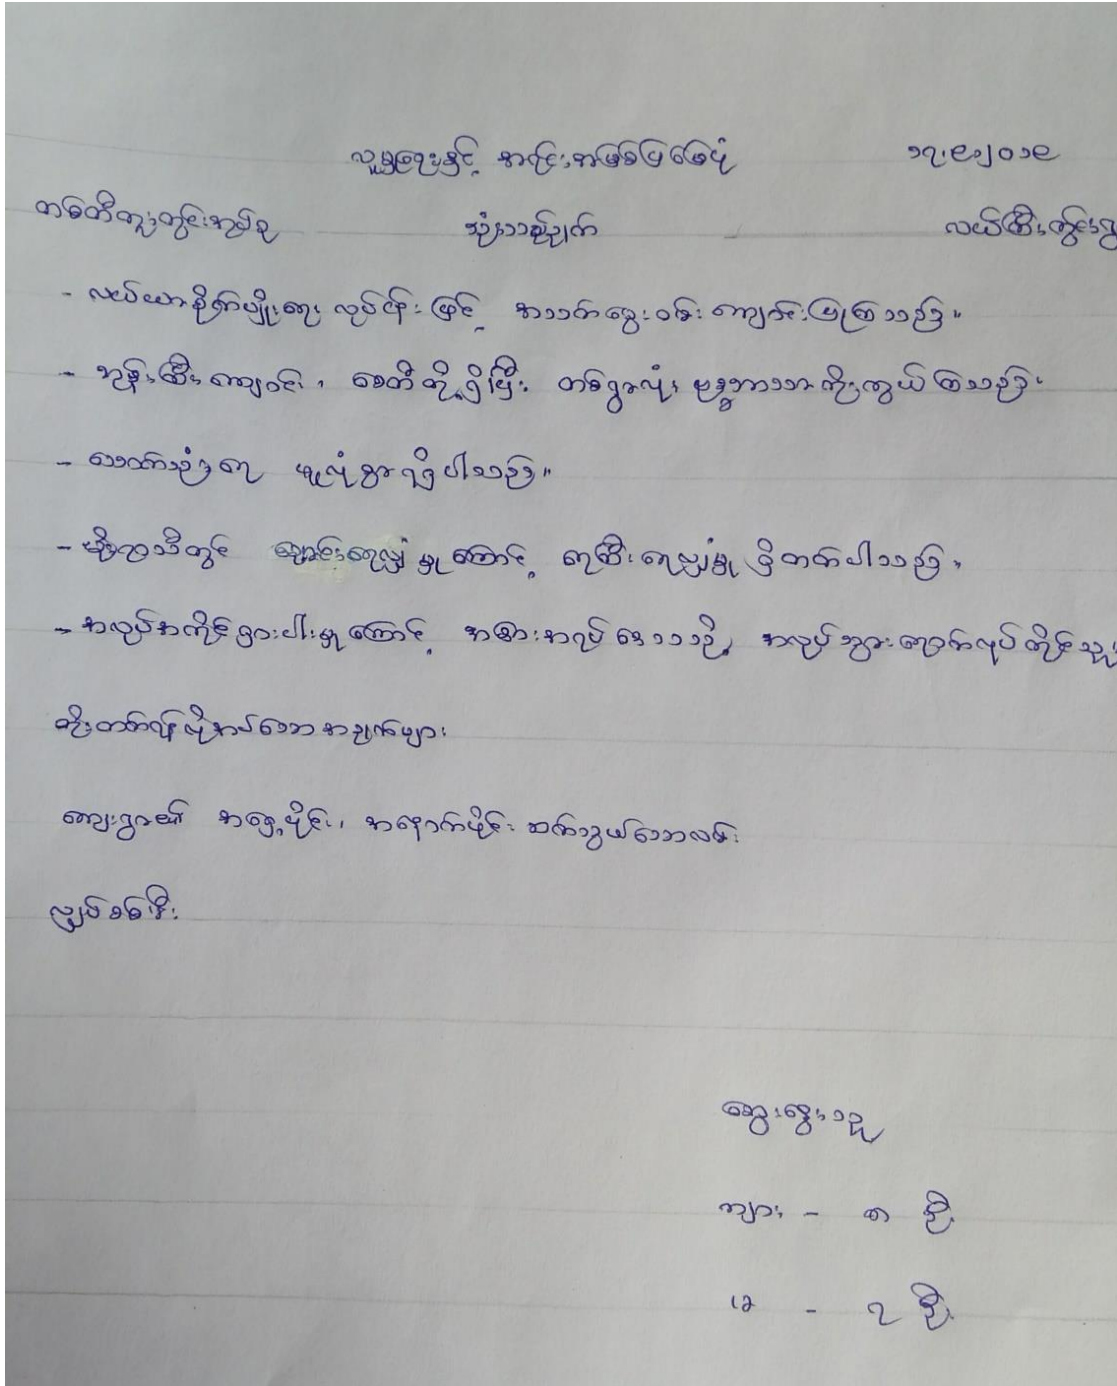 လူမှုရေးနှင့် အရင်းအမြစ်ပြမြေပုံ ၁၇.၉.၂၀၁၉
တစ်တီကူးတွင်းအုပ်စု သုံးသပ်ချက် လယ်ကြီးကွင်းရွ
- လယ်ယာစိုက်ပျိုးရေး လုပ်ငန်းဖြင့် အသက်မွေးဝမ်းကျောင်းပြုကြသည်။
- ဘုန်းကြီးကျောင်း၊ စေတီတို့ရှိပြီး တစ်ရွာလုံး ဗုဒ္ဓဘာသာ ကိုးကွယ်ကြသည်။
- သောက်သုံးရေ ဖူလုံစွာ ရရှိပါသည်။
- မိုးရာသီတွင် ချောင်းရေလျှံမှုကြောင့် ရေကြီးရေလျှံမှု ရှိတတ်ပါသည်။
- အလုပ်အကိုင်ရှားပါးမှုကြောင့် အခြားအရပ်ဒေသသို့ အလုပ်သွားရောက်လုပ်ကိုင်သူ
တိုးတက်ရန်လိုအပ်သော အချက်များ
ကျေးရွာ၏ အရှေ့ပိုင်း၊ အနောက်ပိုင်း ဆက်သွယ်သောလမ်း
လျှပ်စစ်မီး
ဆွေးနွေးသူ
ကျား - ၈ ဦး
မ - ၇ ဦး